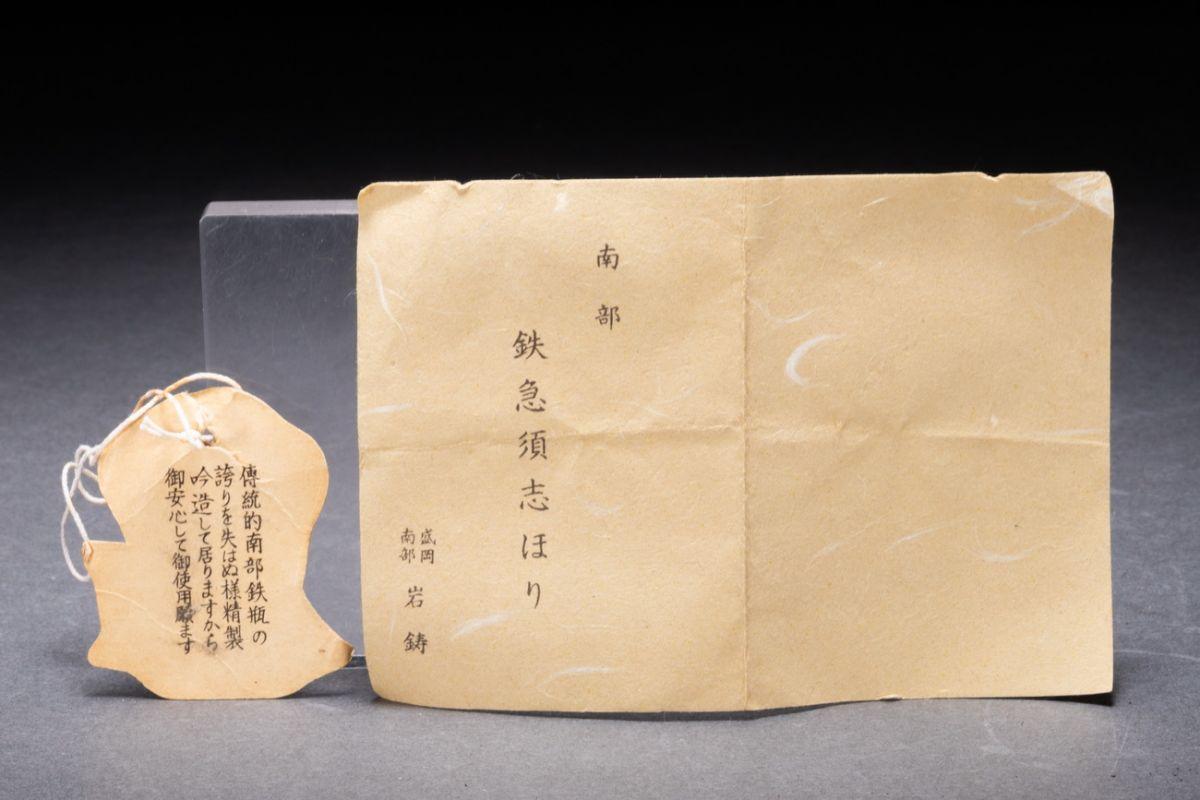 傳統的南部鉄瓶の
誇りを失はぬ様精製
吟造して居りますから
御安心して御使用願ます
南部
鉄急須志ほり
盛岡
南部
岩鋳